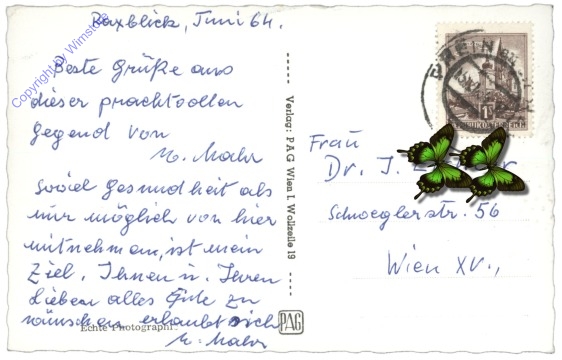 Raxblick, Juni 64.
Copyright by Wimsto
Beste Grüße aus
dieser prachtvollen
Gegend von
M. Mahr
Soviel Gesundheit als
nur möglich von hier
mitnehmen, ist mein
Ziel. Ihnen u. Ihren
Lieben alles Gute zu
wünschen erlaubt sich
M. Mahr
Echte Photographie.
Verlag: PAG Wien I. Wollzeile 19
PAG
Frau
Dr. J.
Schweglerstr. 56
Wien XV.,